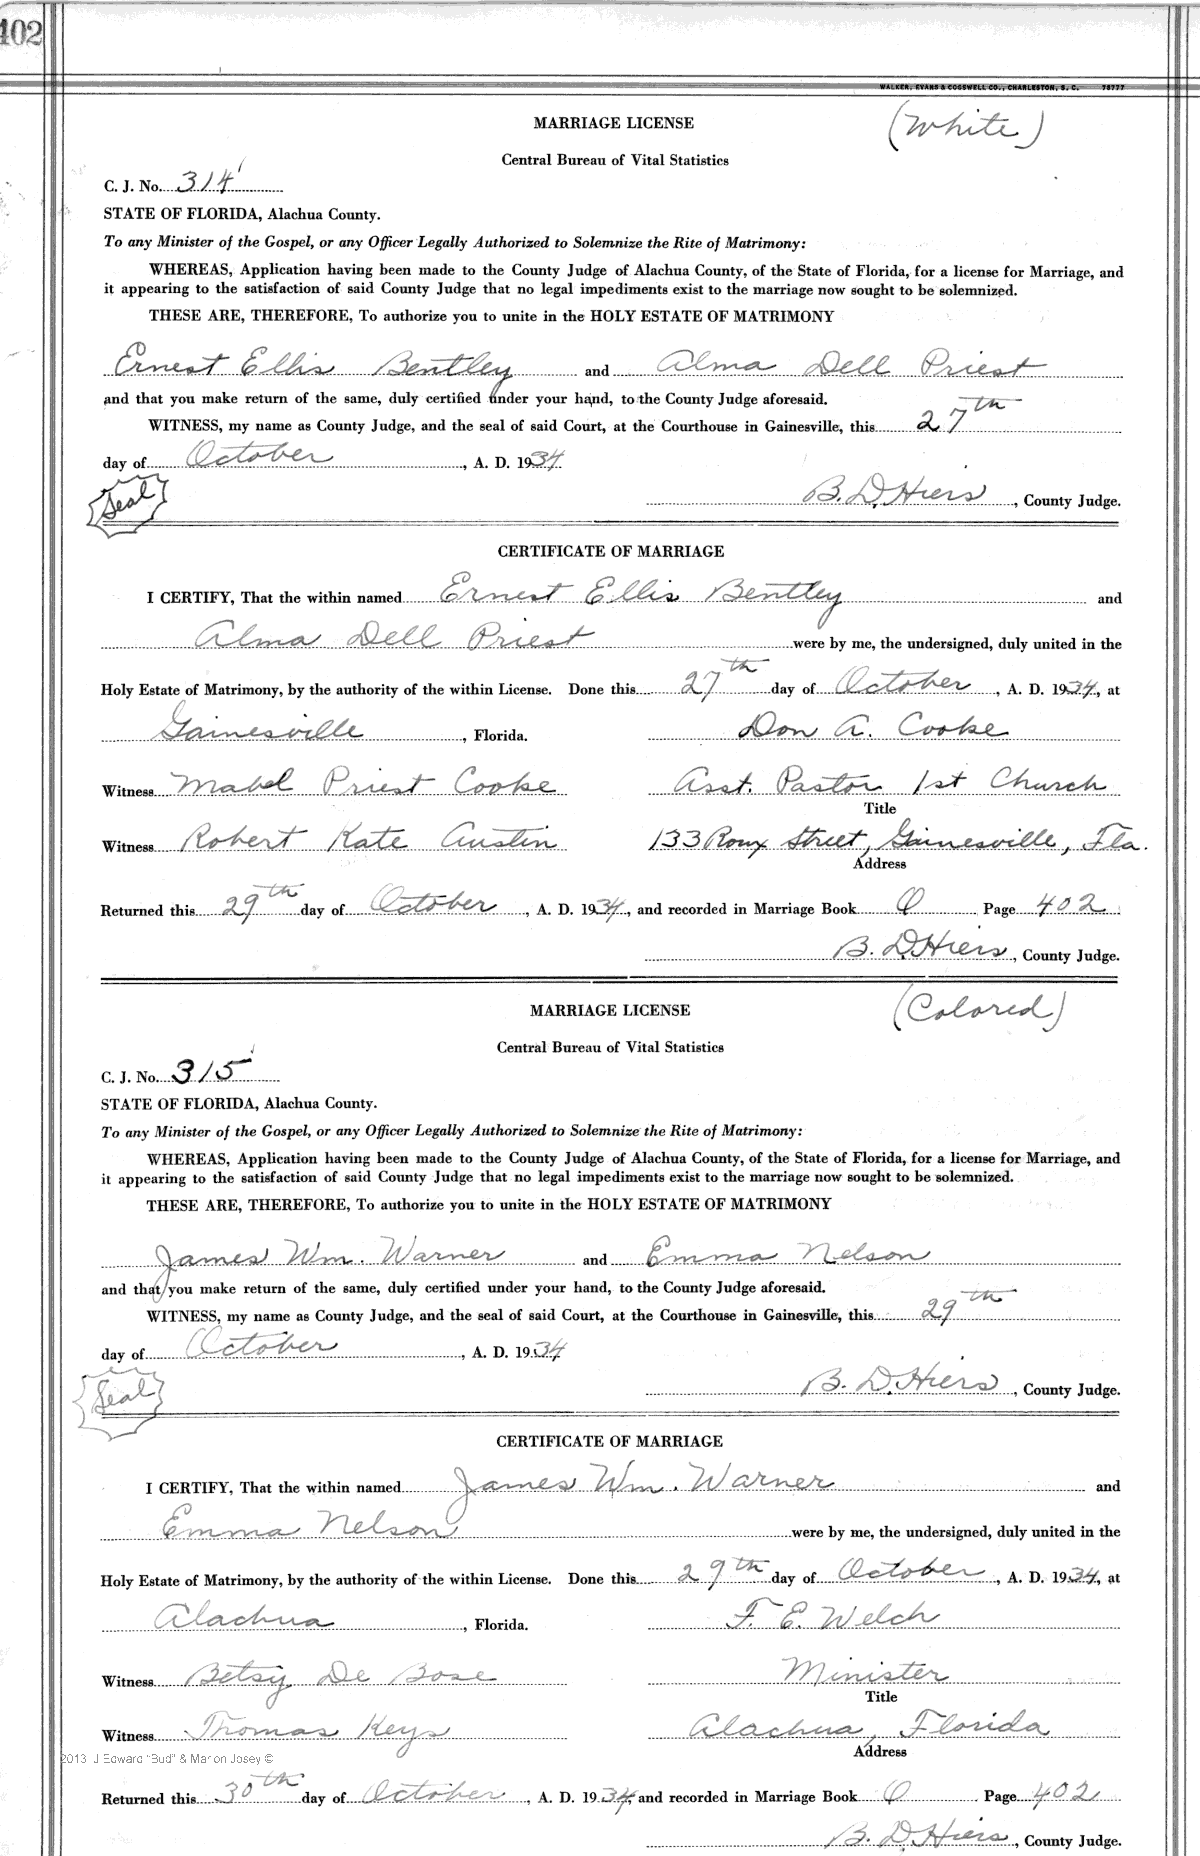 402
WALKER, EVANS & COGSWELL CO., CHARLESTON, S. C. 78777
MARRIAGE LICENSE (White)
Central Bureau of Vital Statistics
C. J. No. 314
STATE OF FLORIDA, Alachua County.
To any Minister of the Gospel, or any Officer Legally Authorized to Solemnize the Rite of Matrimony:
WHEREAS, Application having been made to the County Judge of Alachua County, of the State of Florida, for a license for Marriage, and
it appearing to the satisfaction of said County Judge that no legal impediments exist to the marriage now sought to be solemnized.
THESE ARE, THEREFORE, To authorize you to unite in the HOLY ESTATE OF MATRIMONY
Ernest Ellis Bentley and Alma Dell Priest
and that you make return of the same, duly certified under your hand, to the County Judge aforesaid.
WITNESS, my name as County Judge, and the seal of said Court, at the Courthouse in Gainesville, this 27th
day of October, A. D. 1934
Seal
B. D. Hiers, County Judge.
CERTIFICATE OF MARRIAGE
I CERTIFY, That the within named Ernest Ellis Bentley and
Alma Dell Priest were by me, the undersigned, duly united in the
Holy Estate of Matrimony, by the authority of the within License. Done this 27th day of October, A. D. 1934, at
Gainesville, Florida. Don A. Cooke
Witness Mabel Priest Cooke Asst. Pastor 1st Church
Title
Witness Robert Kate Austin 133 Roux Street, Gainesville, Fla.
Address
Returned this 29th day of October, A. D. 1934, and recorded in Marriage Book O Page 402
B. D. Hiers, County Judge.
MARRIAGE LICENSE (Colored)
Central Bureau of Vital Statistics
C. J. No. 315
STATE OF FLORIDA, Alachua County.
To any Minister of the Gospel, or any Officer Legally Authorized to Solemnize the Rite of Matrimony:
WHEREAS, Application having been made to the County Judge of Alachua County, of the State of Florida, for a license for Marriage, and
it appearing to the satisfaction of said County Judge that no legal impediments exist to the marriage now sought to be solemnized.
THESE ARE, THEREFORE, To authorize you to unite in the HOLY ESTATE OF MATRIMONY
James Wm. Warner and Emma Nelson
and that you make return of the same, duly certified under your hand, to the County Judge aforesaid.
WITNESS, my name as County Judge, and the seal of said Court, at the Courthouse in Gainesville, this 29th
day of October, A. D. 1934
Seal
B. D. Hiers, County Judge.
CERTIFICATE OF MARRIAGE
I CERTIFY, That the within named James Wm. Warner and
Emma Nelson were by me, the undersigned, duly united in the
Holy Estate of Matrimony, by the authority of the within License. Done this 29th day of October, A. D. 1934, at
Alachua, Florida. F. E. Welch
Witness Betsy De Bose Minister
Title
Witness Thomas Keys Alachua, Florida
Address
2013 J Edward "Bud" & Marion Josey ©
Returned this 30th day of October, A. D. 1934, and recorded in Marriage Book O Page 402
B. D. Hiers, County Judge.